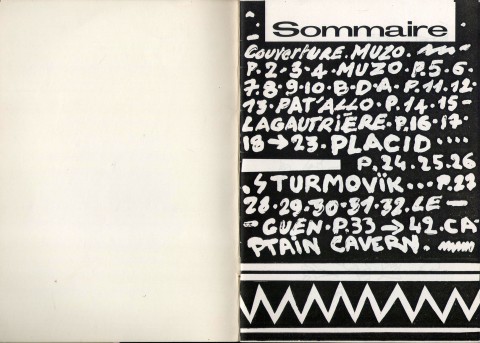 Sommaire
Couverture. MUZO.
P.2·3·4·MUZO·P.5·6·
7·8·9·10·B·D·A·P.11·12·
13·PAT'ALLO·P.14·15-
LAGAUTRIÈRE·P.16·17·
18→23·PLACID····
P.24.25.26
.STURMOVÏK...P.27
28·29·30·31·32.LE-
-GUEN·P.33→42.CA-
PTAIN CAVERN.